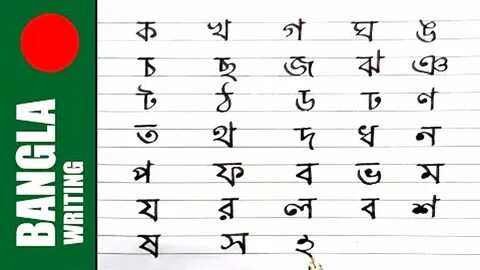 BANGLA
WRITING
ক খ গ ঘ ঙ
চ ছ জ ঝ ঞ
ট ঠ ড ঢ ণ
ত থ দ ধ ন
প ফ ব ভ ম
য র ল ব শ
ষ স হ